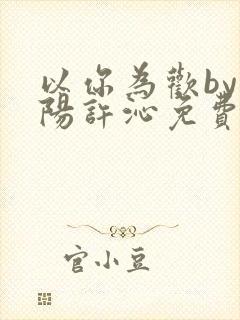 以你為歡by
陽許沁免費
官小豆